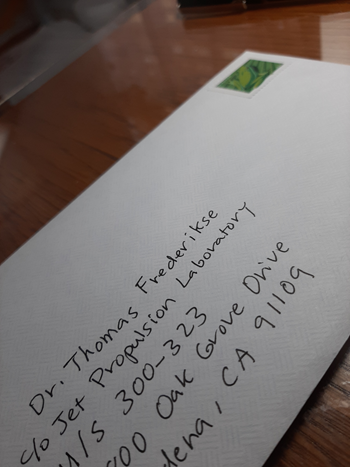 Dr. Thomas Frederikse
c/o Jet Propulsion Laboratory
M/S 300-323
00 Oak Grove Drive
dena, CA 91109